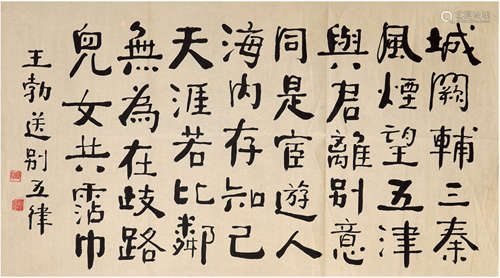 城闕輔三秦
風煙望五津
與君離别意
同是宦遊人
海内存知己
天涯若比鄰
無為在歧路
兒女共霑巾
王勃送别五律